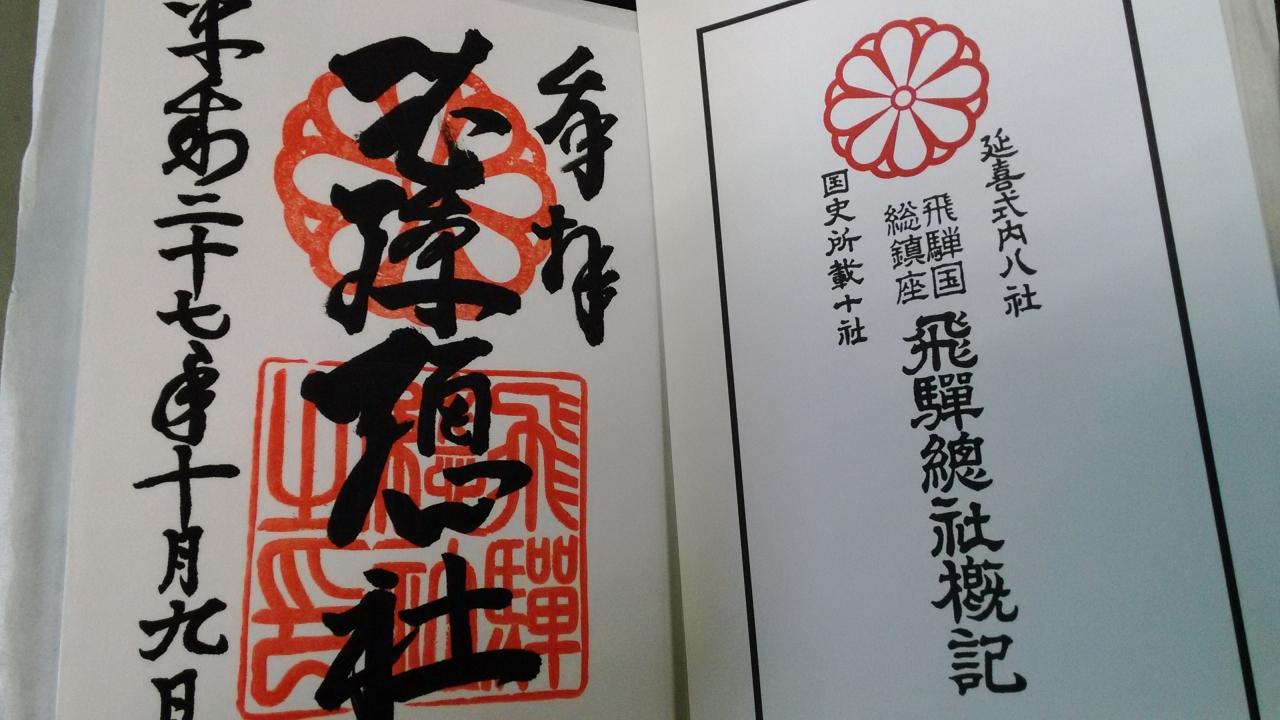 延喜式内八社
飛騨国
総鎮座
飛驒總社概記
国史所載十社
奉拝
飛驒總社
平成二十七年十月九日
飛驒
總社
之印